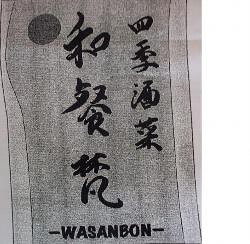 四季酒菜
和餐梵
-WASANBON-